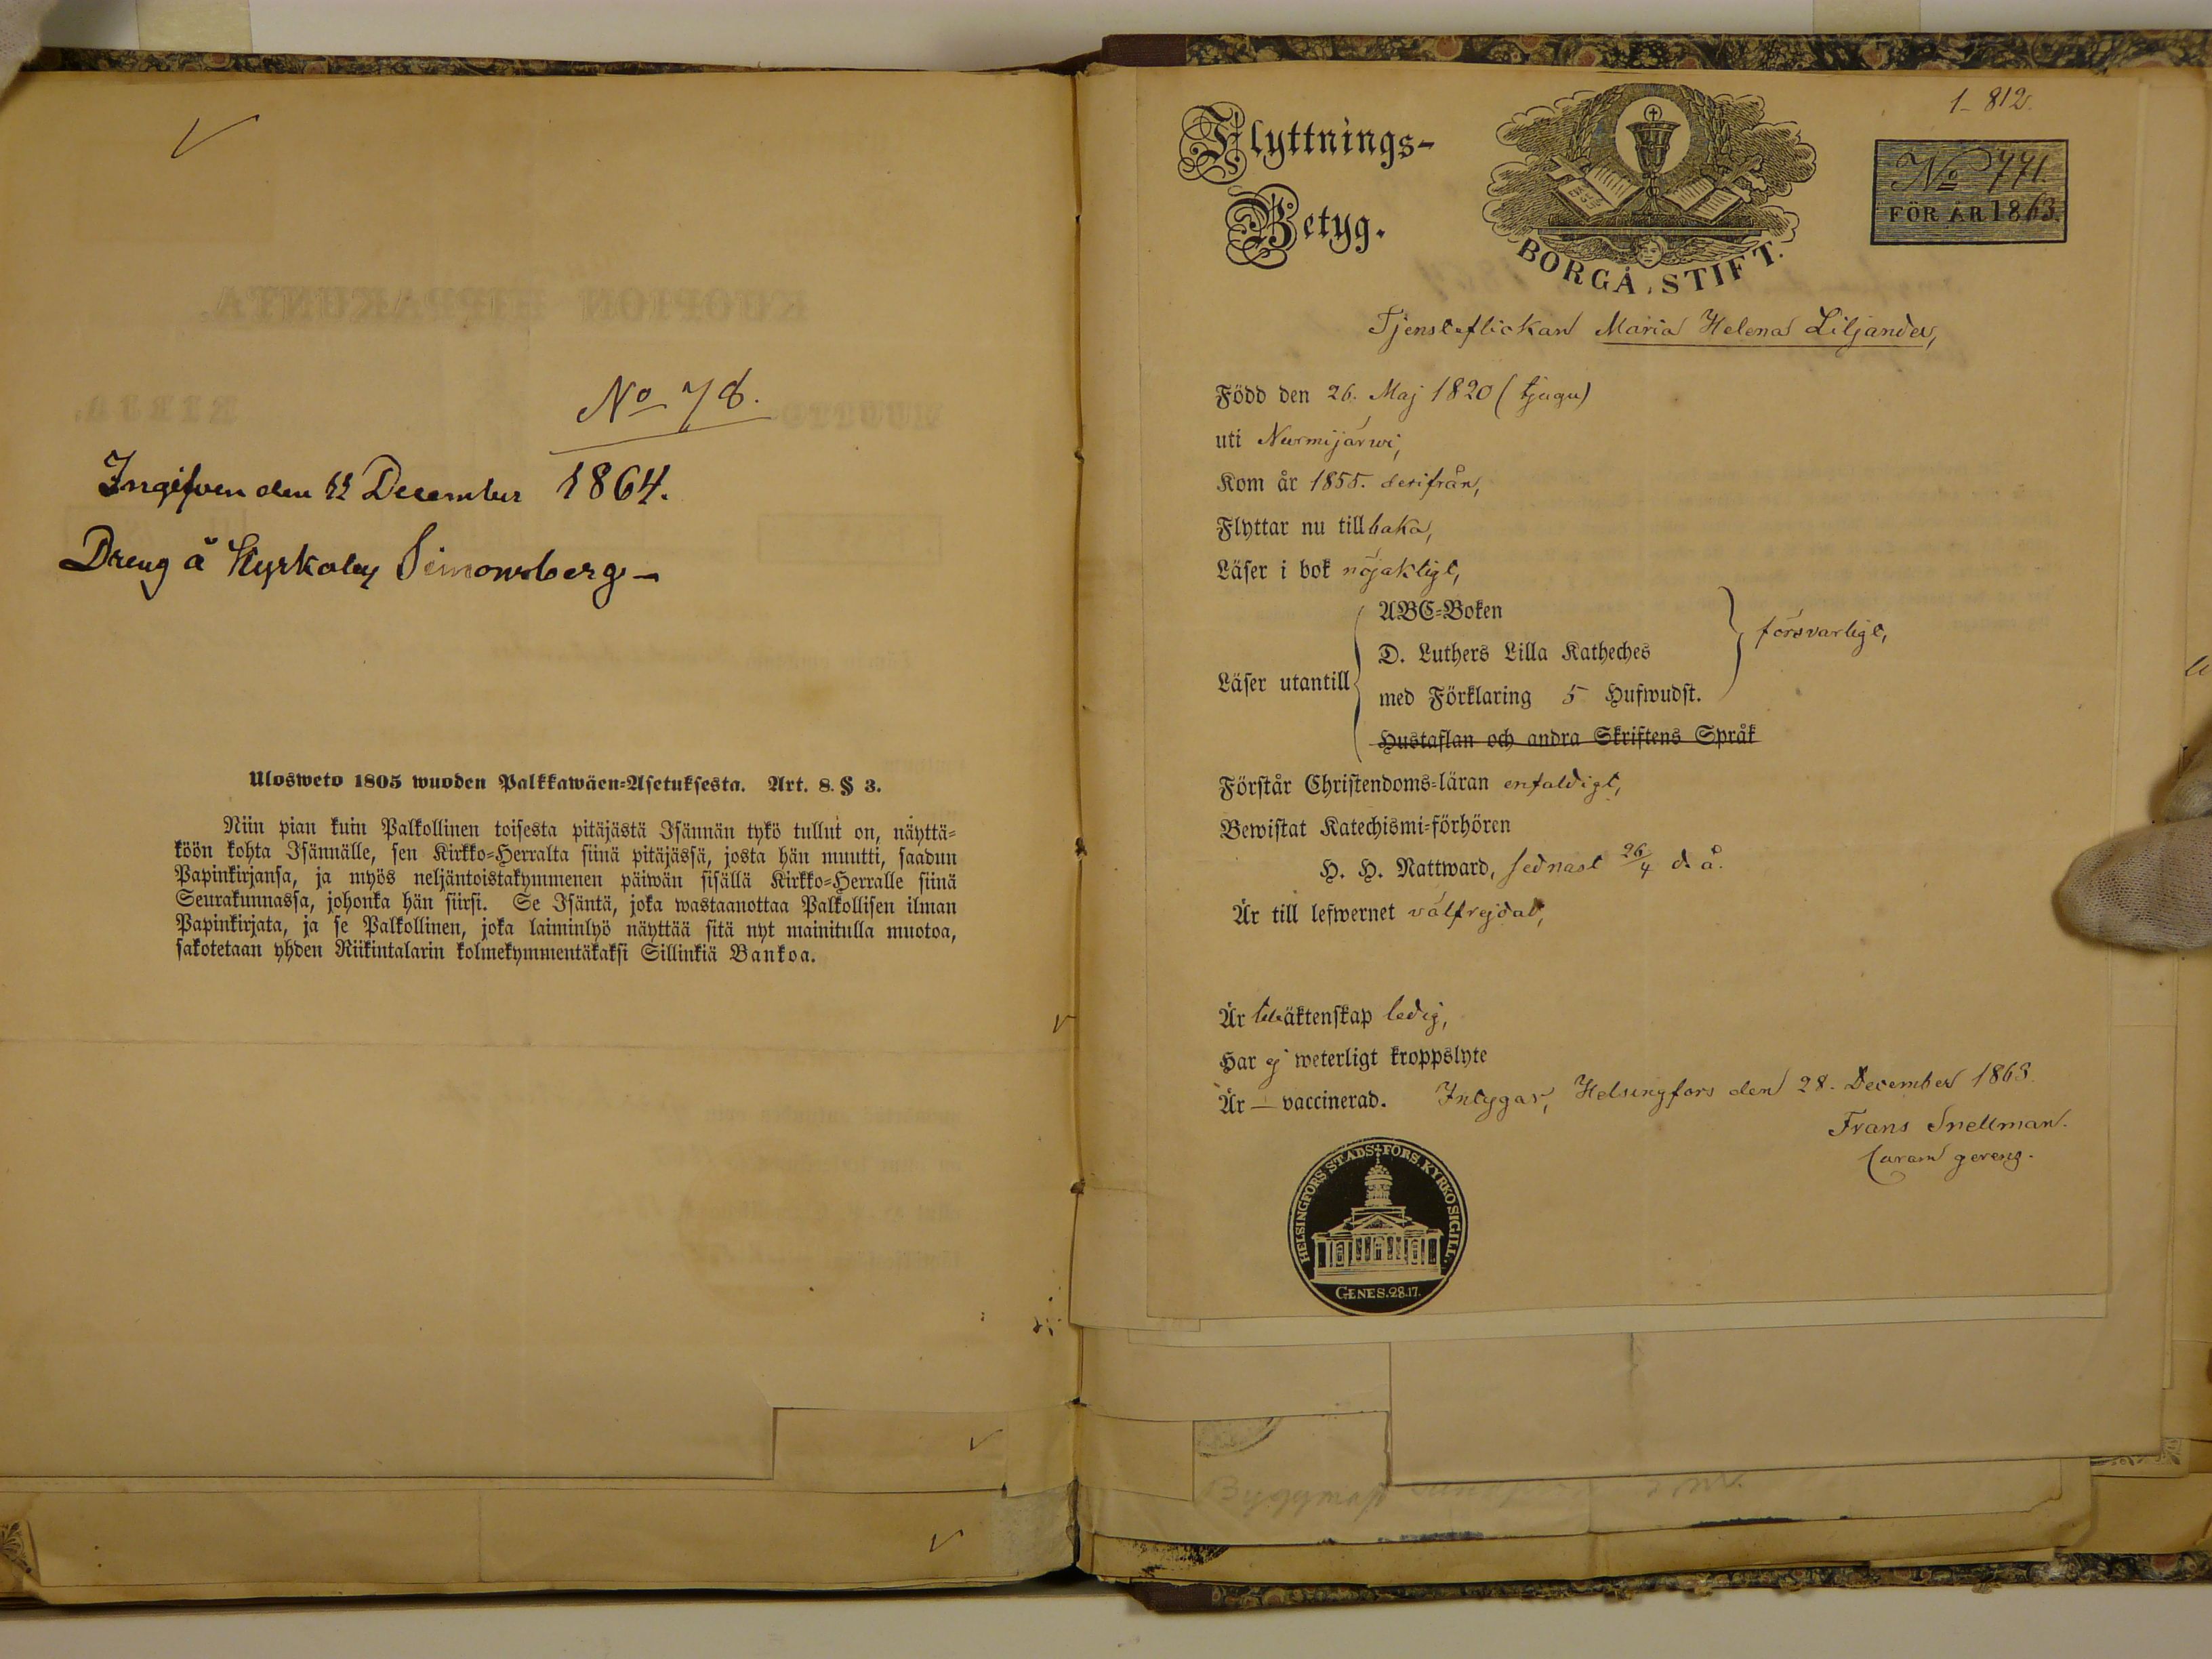 No 78.
Ingifven den 11 December 1864.
Dreng å Kyrkoby Simonsberg
Ulosweto 1805 wuoden Palkkawäen=Asetuksesta. Art. 8. § 3.
Niin pian kuin Palkollinen toisesta pitäjästä Isännän tykö tullut on, näyttä=
köön kohta Isännälle, sen Kirkko=Herralta siinä pitäjässä, josta hän muutti, saadun
Papinkirjansa, ja myös neljäntoistakymmenen päiwän sisällä Kirkko=Herralle siinä
Seurakunnassa, johonka hän siirsi. Se Isäntä, joka wastaanottaa Palkollisen ilman
Papinkirjata, ja se Palkollinen, joka laiminlyö näyttää sitä nyt mainitulla muotoa,
sakotetaan yhden Riikintalarin kolmekymmentäkaksi Sillinkiä Bankoa.
1-812.
Flyttnings-
Betyg.
BORGÅ STIFT.
No 771.
FÖR ÅR 1863.
Tjensteflickan Maria Helena Liljander,
Född den 26. Maj 1820 (tjugu)
uti Nurmijärwi,
Kom år 1855. derifrån,
Flyttar nu tillbaka,
Läser i bok nöjaktigt,
Läser utantill
ABC=Boken
D. Luthers Lilla Katheches
med Förklaring 5 Hufwudst.
Hustaflan och andra Skriftens Språk
försvarligt,
Förstår Christendoms=läran enfaldigt,
Bewistat Katechismi=förhören
H. H. Nattward, sednast 26/4 d. å.
Är till lefwernet välfrejdad,
Är till äktenskap ledig,
Har ej weterligt kroppslyte
Är — vaccinerad. Intygar, Helsingfors den 28. December 1863.
Frans Snellman.
Caram gereng.
HELSINGFORS STADS FÖRS. KYRKOSIGILL.
GENES. 28.17.